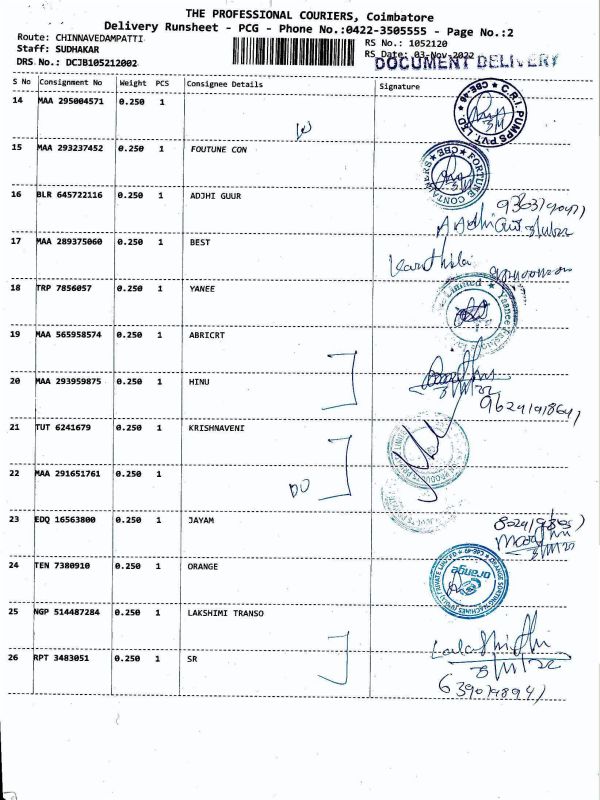 THE PROFESSIONAL COURIERS, Coimbatore
Delivery Runsheet - PCG - Phone No.:0422-3505555 - Page No.:2
Route: CHINNAVEDAMPATTI
Staff: SUDHAKAR
DRS No.: DCJB105212002
RS No.: 1052120
RS Date: 03-Nov-2022
DOCUMENT DELIVERY
S No Consignment No Weight PCS Consignee Details Signature
14 MAA 295004571 0.250 1
C.R.I PUMPS PVT LTD CBE-46
15 MAA 293237452 0.250 1 FOUTUNE CON
FORTUNE CONTAINERS CBE
16 BLR 645722116 0.250 1 ADJHI GUUR
17 MAA 289375060 0.250 1 BEST
18 TRP 7856057 0.250 1 YANEE
Limited Yaanee
19 MAA 565958574 0.250 1 ABRICRT
20 MAA 293959875 0.250 1 HINU
21 TUT 6241679 0.250 1 KRISHNAVENI
22 MAA 291651761 0.250 1
DO
23 EDQ 16563800 0.250 1 JAYAM
24 TEN 7380910 0.250 1 ORANGE
orange
25 NGP 514487284 0.250 1 LAKSHIMI TRANSO
26 RPT 3483051 0.250 1 SR
3/11/22